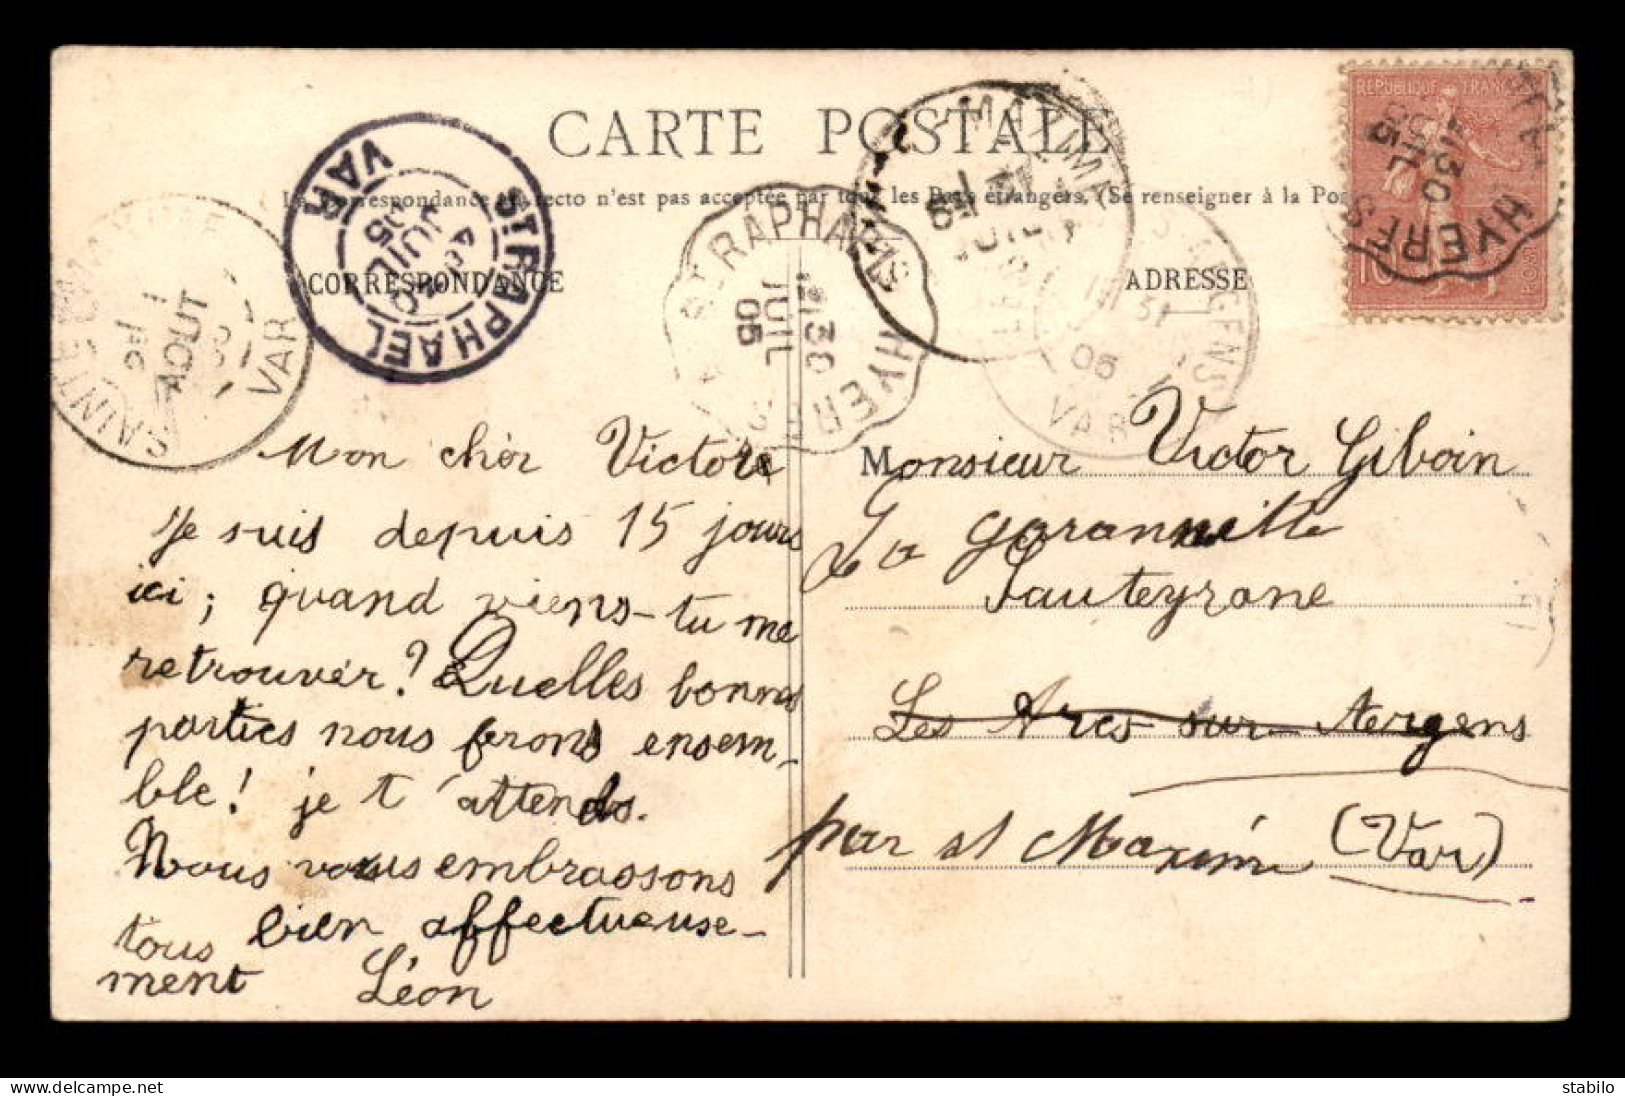 CARTE POSTALE
La Correspondance au recto n'est pas acceptée par tous les Pays étrangers. (Se renseigner à la Pos
CORRESPONDANCE
ADRESSE
REPUBLIQUE FRANÇAISE
10
POSTES
HYERES
1 30 JUIL 05
ST RAPHAEL
VAR
4 30 JUIL 05
ST RAPHA
HYERES
1 30 JUIL 05
SAINTE MAXIME
1 AOUT 05
VAR
MAXIME
JUIL
S ARGENS
31
05
VAR
Mon cher Victor
Je suis depuis 15 jours
ici; quand viens-tu me
retrouver? Quelles bonnes
parties nous ferons ensem-
ble! je t'attends.
Nous vous embrassons
tous bien affectueuse-
ment Léon
Monsieur Victor Giboin
La garannette
Sauteyrane
Les Arcs-sur-Argens
par st Maxime (Var)
stabilo